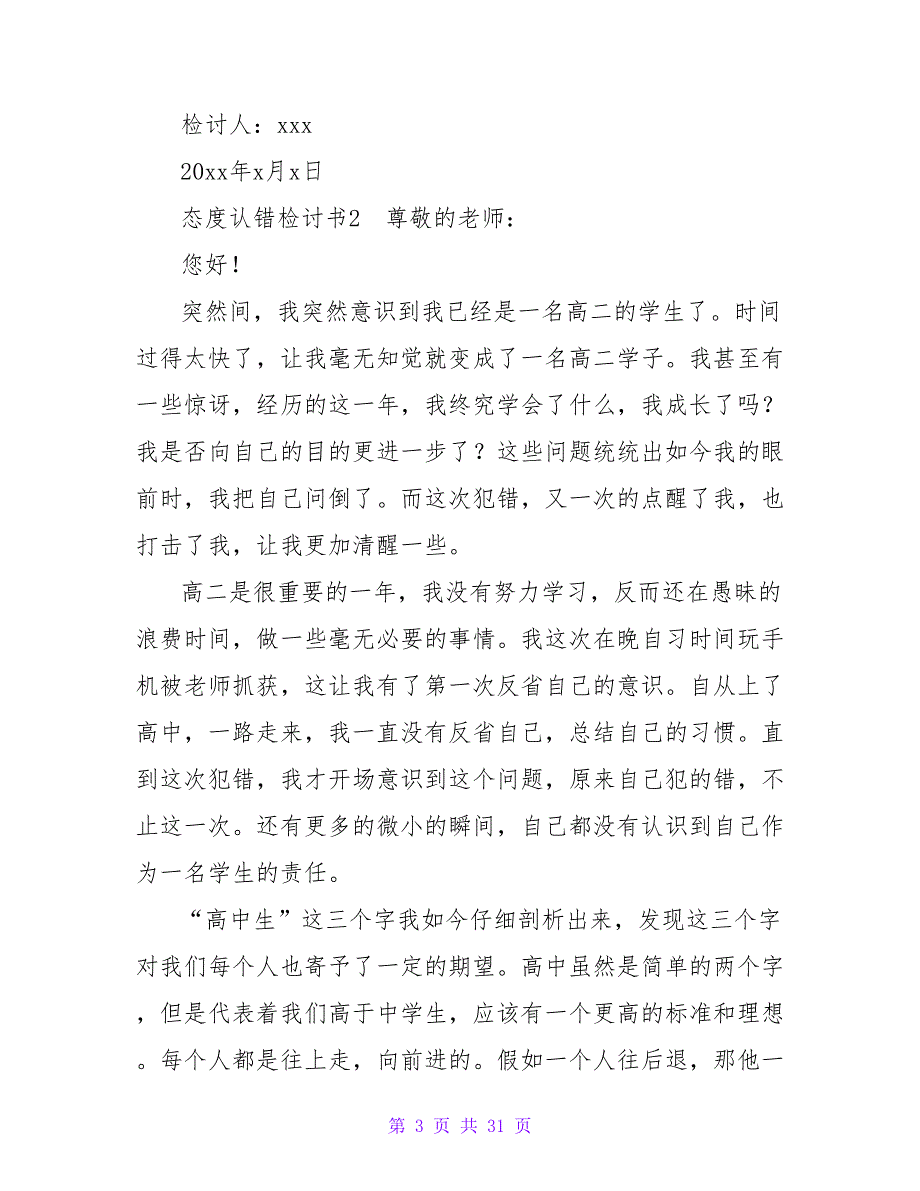 检讨人：xxx
20xx年x月x日
态度认错检讨书2　尊敬的老师：
您好！
突然间，我突然意识到我已经是一名高二的学生了。时间
过得太快了，让我毫无知觉就变成了一名高二学子。我甚至有
一些惊讶，经历的这一年，我终究学会了什么，我成长了吗？
我是否向自己的目的更进一步了？这些问题统统出如今我的眼
前时，我把自己问倒了。而这次犯错，又一次的点醒了我，也
打击了我，让我更加清醒一些。
高二是很重要的一年，我没有努力学习，反而还在愚昧的
浪费时间，做一些毫无必要的事情。我这次在晚自习时间玩手
机被老师抓获，这让我有了第一次反省自己的意识。自从上了
高中，一路走来，我一直没有反省自己，总结自己的习惯。直
到这次犯错，我才开场意识到这个问题，原来自己犯的错，不
止这一次。还有更多的微小的瞬间，自己都没有认识到自己作
为一名学生的责任。
“高中生”这三个字我如今仔细剖析出来，发现这三个字
对我们每个人也寄予了一定的期望。高中虽然是简单的两个字
，但是代表着我们高于中学生，应该有一个更高的标准和理想
。每个人都是往上走，向前进的。假如一个人往后退，那他一
第 3 页 共 31 页